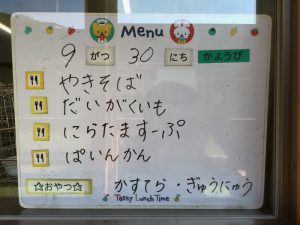 Menu
9 がつ 30 にち かようび
やきそば
だいがくいも
にらたますーぷ
ぱいんかん
☆おやつ☆ かすてら・ぎゅうにゅう
Tasty Lunch Time